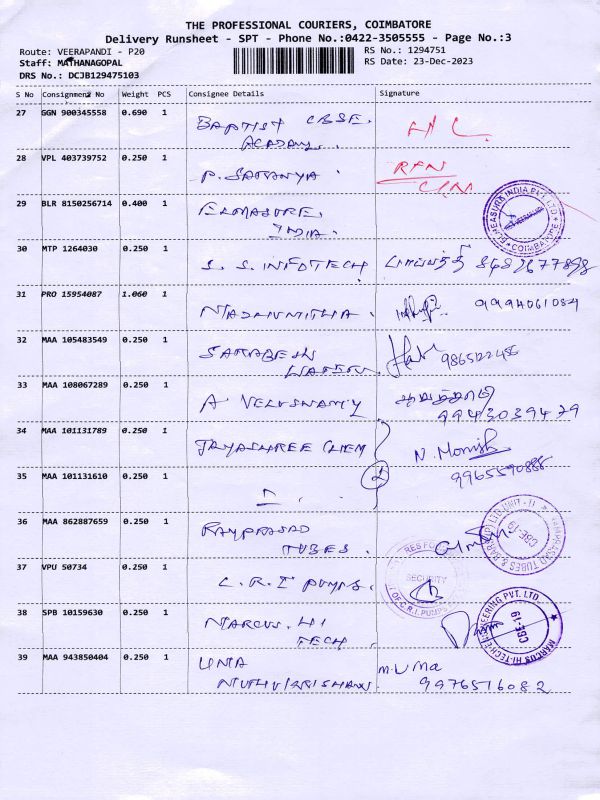 THE PROFESSIONAL COURIERS, COIMBATORE
Delivery Runsheet - SPT - Phone No.:0422-3505555 - Page No.:3
Route: VEERAPANDI - P20
RS No.: 1294751
Staff: MATHANAGOPAL
RS Date: 23-Dec-2023
DRS No.: DCJB129475103
S No Consignment No Weight PCS Consignee Details Signature
27 GGN 900345558 0.690 1 BAPTIST CBSE.
ACADEMY.
28 VPL 403739752 0.250 1 P. SARANYA.
29 BLR 8150256714 0.400 1 ELMEASURE
INDIA.
ELMEASURE INDIA PVT LTD
COIMBATORE
30 MTP 1264030 0.250 1 S. S. INFOTECH
31 PRO 15954087 1.060 1 9994061084
32 MAA 105483549 0.250 1 SARABESH
33 MAA 108067289 0.250 1 A VELUSWAMY
9943039479
34 MAA 101131789 0.250 1 JAYASHREE CHEM N. Monish
2 9965590888
35 MAA 101131610 0.250 1
36 MAA 862887659 0.250 1 RAMPRASAD
TUBES.
CBE-19
37 VPU 50734 0.250 1 C. R. I PUMPS.
SECURITY
C.R.I. PUMPS
38 SPB 10159630 0.250 1 MARCUS. HI
TECH.
MARCUS HI-TECH ENGINEERING PVT. LTD.
CBE-19
39 MAA 943850404 0.250 1 UMA M. Uma
MUTHUKRISHNAN. 9976516082